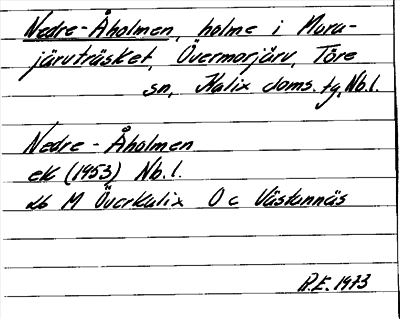 Nedre-Åholmen, holme i Mora-
järvträsket, Övermorjärv, Töre
sn, Kalix doms. tg, Nb.l.
Nedre - Åholmen
ek (1953) Nb.l.
db M Överkalix O c Västannäs
R.E. 1973